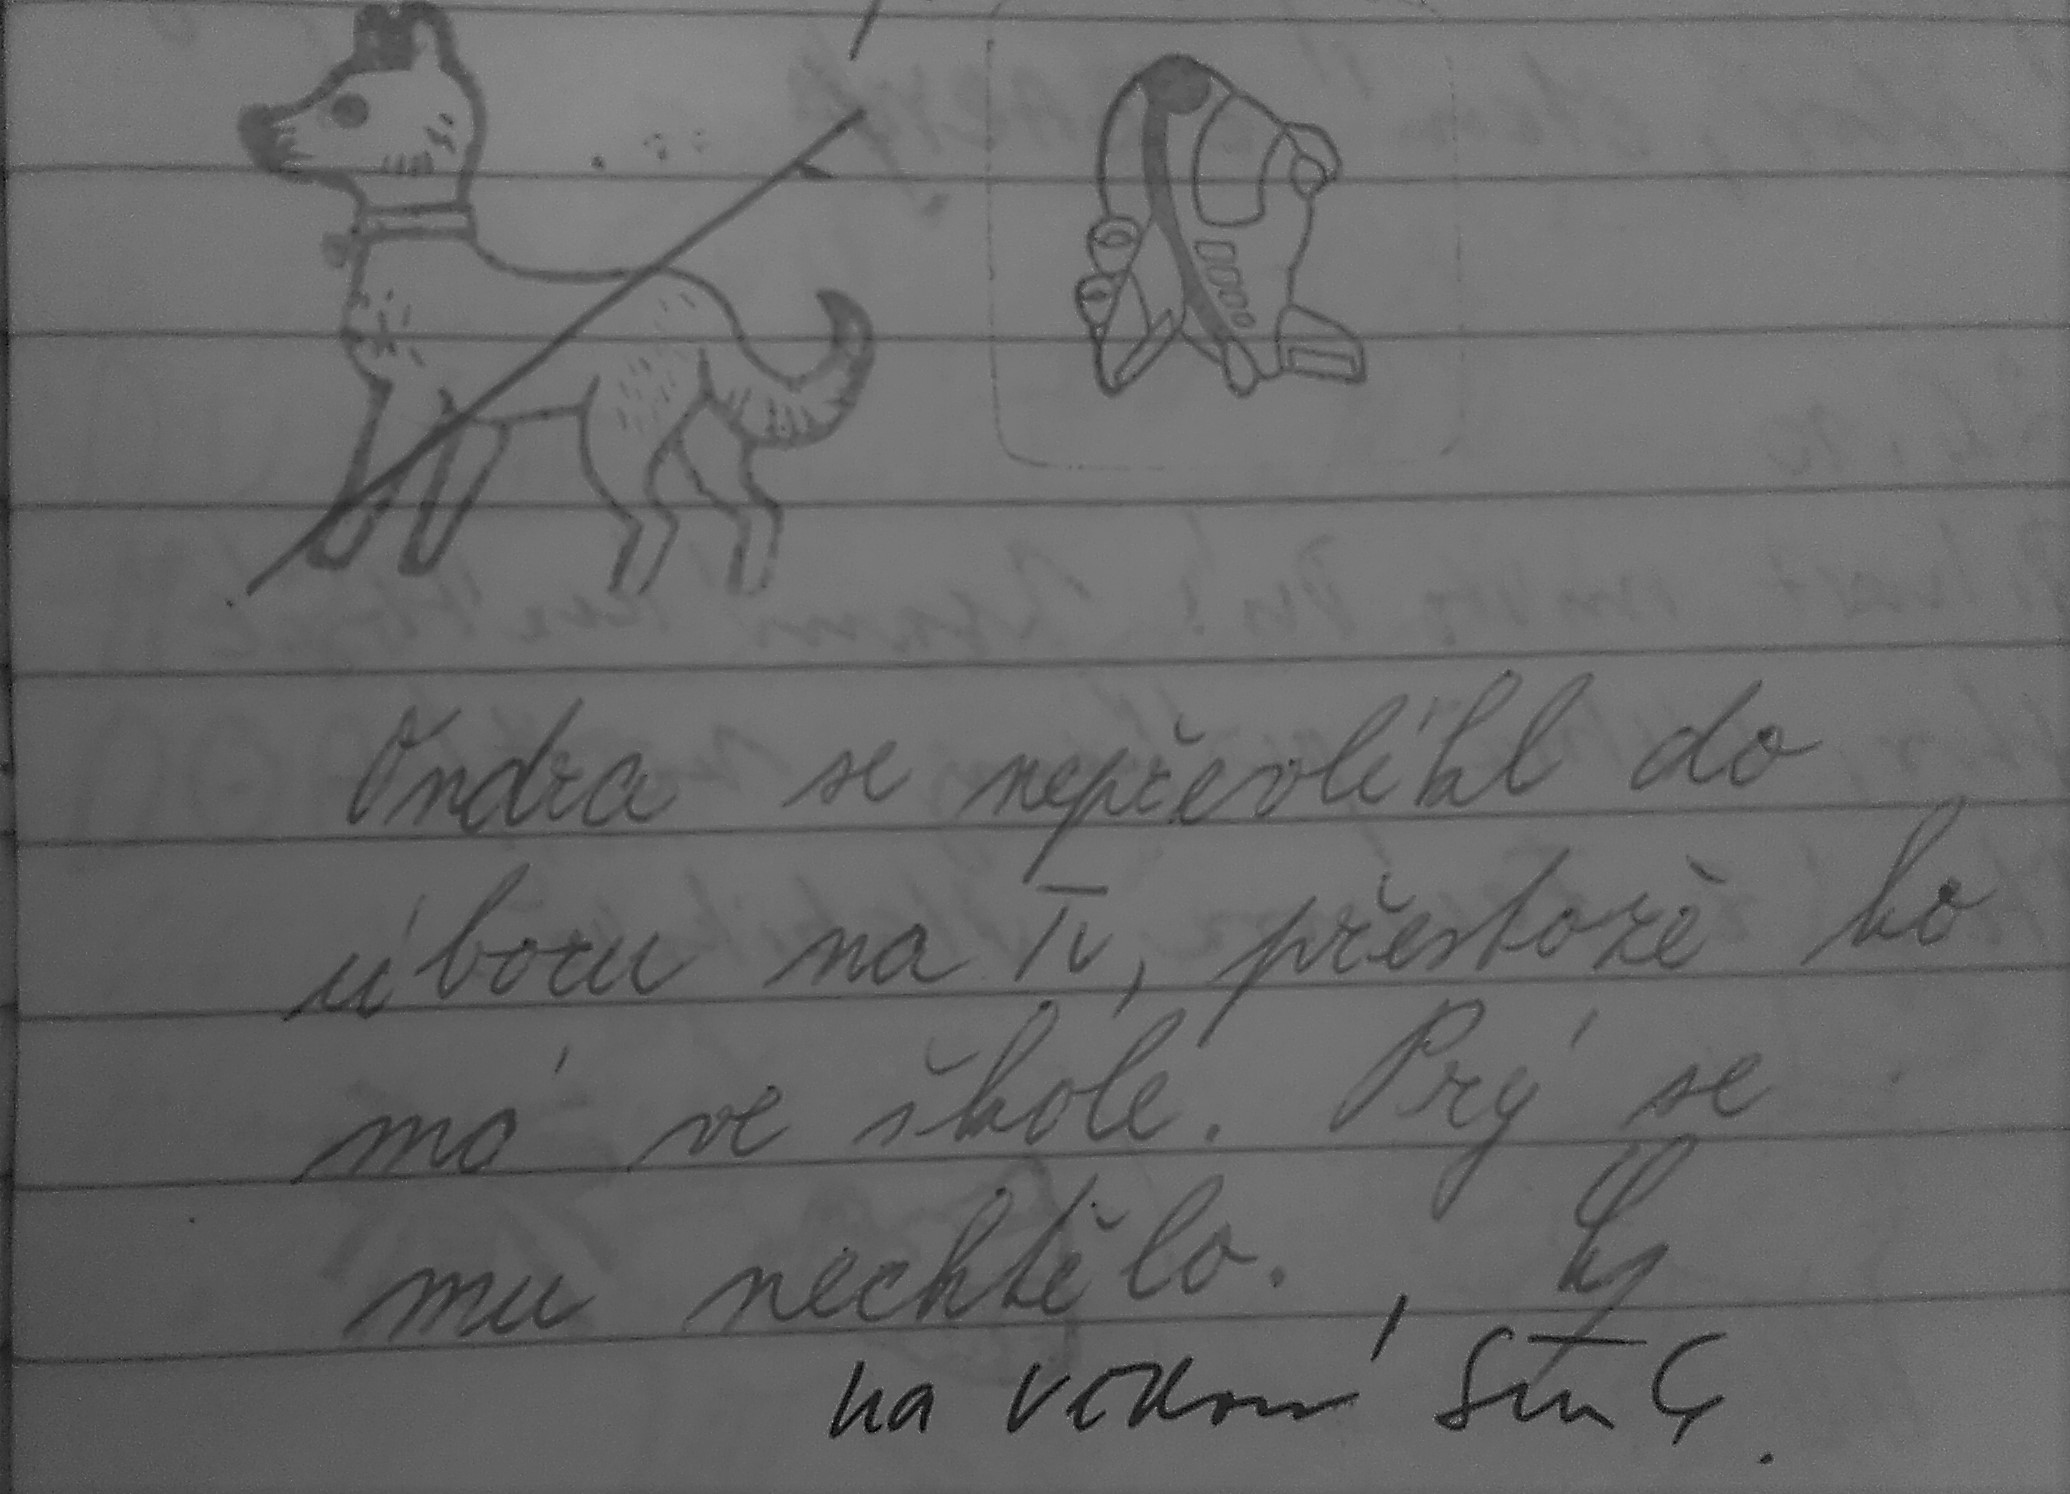 Ondra se nepřevlíkl do
úboru na TV, přestože ho
má ve škole. Prý se
mu nechtělo.
na vědomí